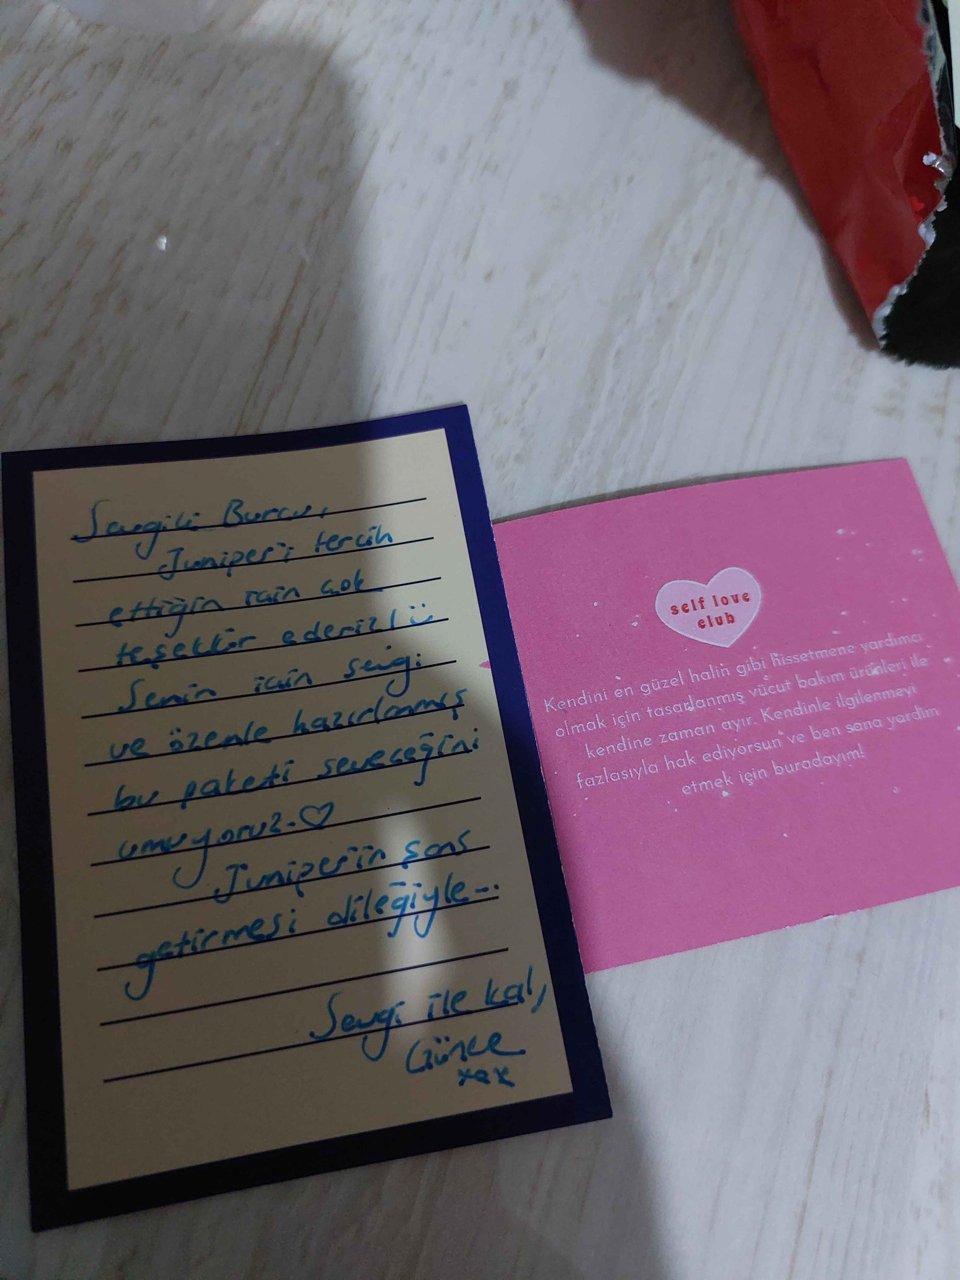 Sevgili Burcu,
Juniper'i tercih
ettiğin için çok
teşekkür ederiz! ü
Senin için sevgi
ve özenle hazırlanmış
bu paketi seveceğini
umuyoruz. ♡
Juniper'in şans
getirmesi dileğiyle...
Sevgi ile kal,
Günce
xox
self love
club
Kendini en güzel halin gibi hissetmene yardımcı
olmak için tasarlanmış vücut bakım ürünleri ile
kendine zaman ayır. Kendinle ilgilenmeyi
fazlasıyla hak ediyorsun ve ben sana yardım
etmek için buradayım!